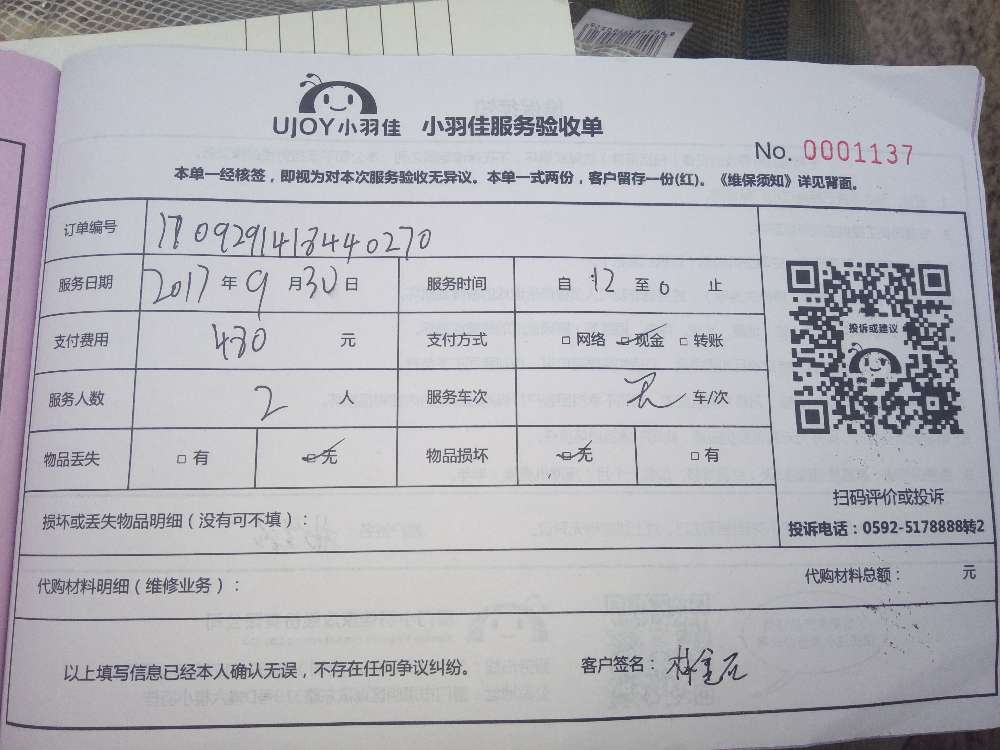 UJOY小羽佳 小羽佳服务验收单
No. 0001137
本单一经核签，即视为对本次服务验收无异议。本单一式两份，客户留存一份(红)。《维保须知》详见背面。
订单编号
服务日期 2017 年 9 月 30 日 服务时间 自 12 至 0 止
支付费用 480 元 支付方式 □ 网络 □ 现金 □ 转账
服务人数 2 人 服务车次 无 车/次
物品丢失 □ 有 □ 无 物品损坏 □ 无 □ 有
投诉或建议
扫码评价或投诉
投诉电话：0592-5178888转2
损坏或丢失物品明细（没有可不填）：
代购材料明细（维修业务）： 代购材料总额： 元
以上填写信息已经本人确认无误，不存在任何争议纠纷。 客户签名：